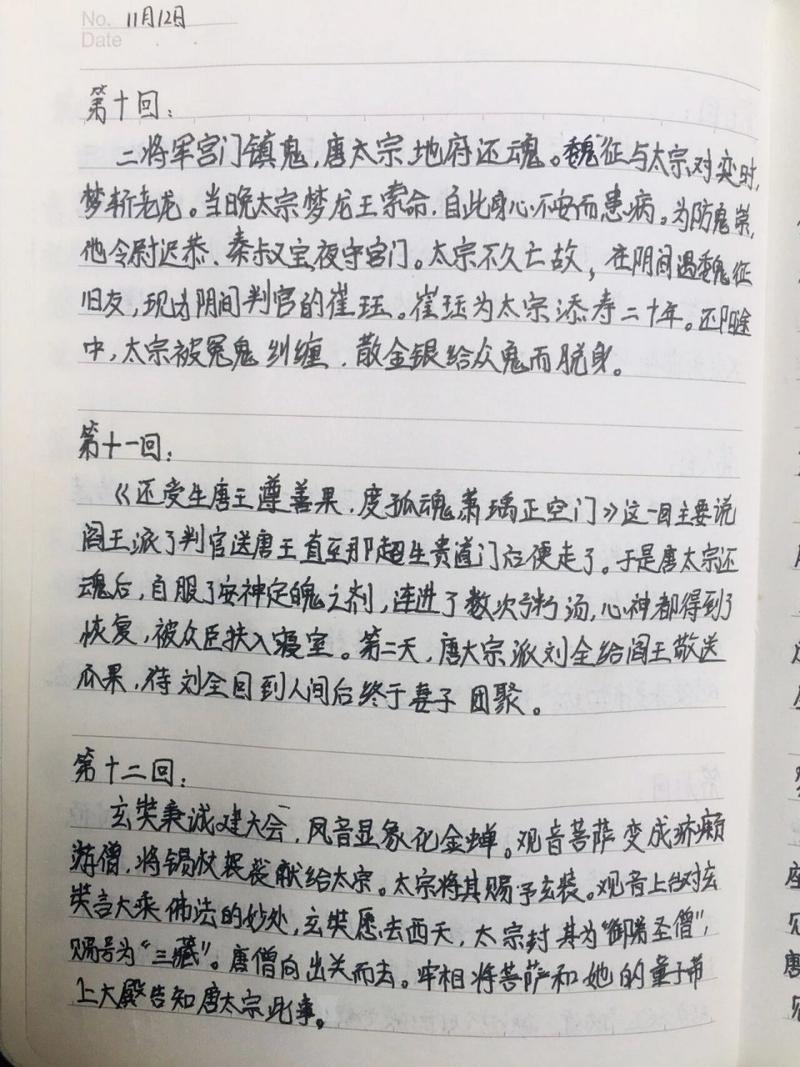 No. 11月12日
Date
第十回：
二将军宫门镇鬼，唐太宗地府还魂。魏征与太宗对奕时，
梦斩老龙。当晚太宗梦龙王索命，自此身心不安而患病。为防鬼祟，
他令尉迟恭、秦叔宝夜守宫门。太宗不久亡故，在阴间遇魏征
旧友，现为阴间判官的崔珏。崔珏为太宗添寿二十年。还阳途
中，太宗被冤鬼纠缠，散金银给众鬼而脱身。
第十一回：
《还受生唐王遵善果，度孤魂萧瑀正空门》这一回主要说
阎王派了判官送唐王直至那超生贵道门后便走了。于是唐太宗还
魂后，自服了安神定魄之剂，连进了数次粥汤，心神都得到了
恢复，被众臣扶入寝室。第二天，唐太宗派刘全给阎王敬送
瓜果，待刘全回到人间后终于妻子团聚。
第十二回：
玄奘秉诚建大会，风音显象化金蝉。观音菩萨变成疥癞
游僧，将锡杖袈裟献给太宗。太宗将其赐予玄奘。观音上台对玄
奘言大乘佛法的妙处，玄奘愿去西天，太宗封其为“御弟圣僧”，
赐号为“三藏”。唐僧向出关而去。宰相将菩萨和她的童子带
上大殿告知唐太宗此事。